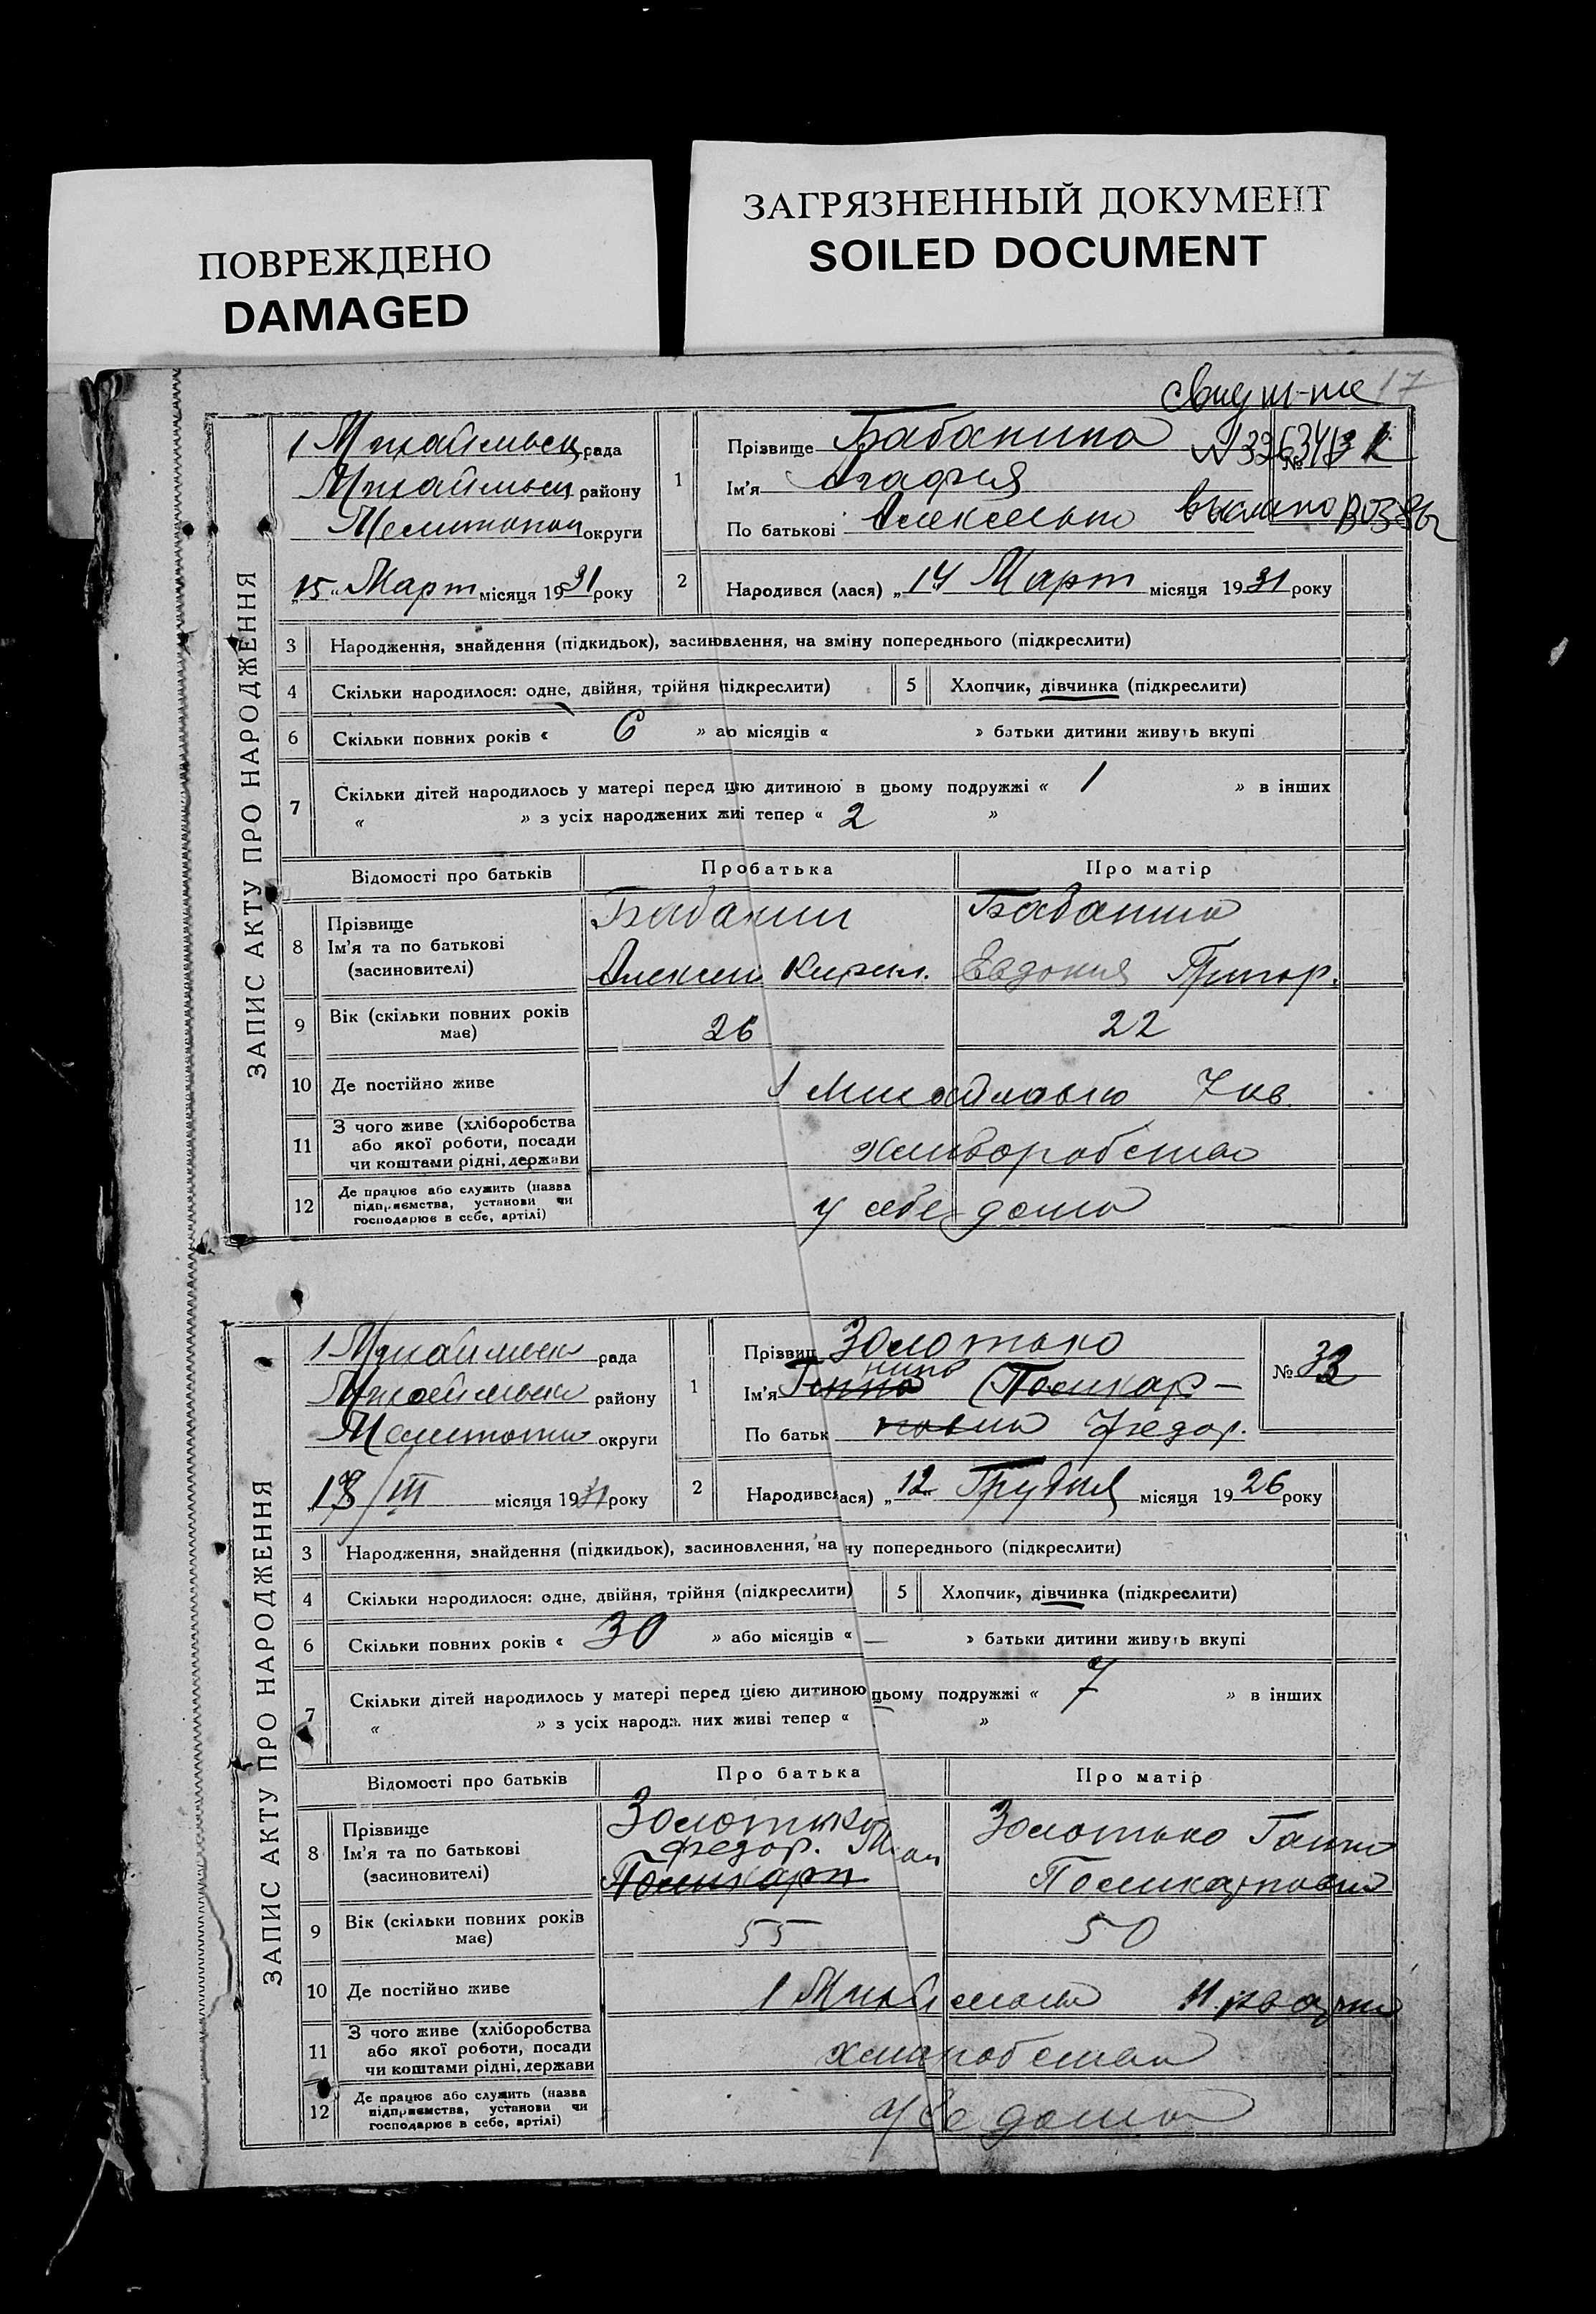 ПОВРЕЖДЕНО
DAMAGED
ЗАГРЯЗНЕННЫЙ ДОКУМЕНТ
SOILED DOCUMENT
17
ЗАПИС АКТУ ПРО НАРОДЖЕННЯ
рада
району
округи
15 Март місяця 1931 року
1
Прізвище Бабанина
№
Ім'я Агафия
По батькові
2 Народився (лася) „14 Март місяця 1931 року
3 Народження, знайдення (підкидьок), засиновлення, на зміну попереднього (підкреслити)
4 Скільки народилося: одне, двійня, трійня підкреслити)
5 Хлопчик, дівчинка (підкреслити)
6 Скільки повних років « 6 » або місяців « » батьки дитини живуть вкупі
7 Скільки дітей народилось у матері перед цією дитиною в цьому подружжі « 1 » в інших
« » з усіх народжених живі тепер « 2 »
Відомості про батьків Про батька Про матір
8 Прізвище Бабанин Бабанина
Ім'я та по батькові
(засиновителі) Алексей Кирил. Евдокия Григор.
9 Вік (скільки повних років має) 26 22
10 Де постійно живе
11 З чого живе (хліборобства
або якої роботи, посади
чи коштами рідні, держави
12 Де працює або служить (назва
підприємства, установи чи
господарює в себе, артілі) у себе дома
ЗАПИС АКТУ ПРО НАРОДЖЕННЯ
рада
району
округи
/III місяця 1931 року
1
Прізвищ Золотько
№ 33
Ім'я
По батьк Федор.
2 Народився ася) „12 Грудня місяця 1926 року
3 Народження, знайдення (підкидьок), засиновлення, на ну попереднього (підкреслити)
4 Скільки народилося: одне, двійня, трійня (підкреслити)
5 Хлопчик, дівчинка (підкреслити)
6 Скільки повних років « 30 » або місяців « — » батьки дитини живуть вкупі
7 Скільки дітей народилось у матері перед цією дитиною цьому подружжі « 7 » в інших
« » з усіх народж них живі тепер « »
Відомості про батьків Про батька Про матір
8 Прізвище Золотько Золотько Ганна
Ім'я та по батькові Федор.
(засиновителі) Поликарп Поликарповна
9 Вік (скільки повних років має) 55 50
10 Де постійно живе
11 З чого живе (хліборобства
або якої роботи, посади
чи коштами рідні, держави
12 Де працює або служить (назва
підприємства, установи чи
господарює в себе, артілі) дома